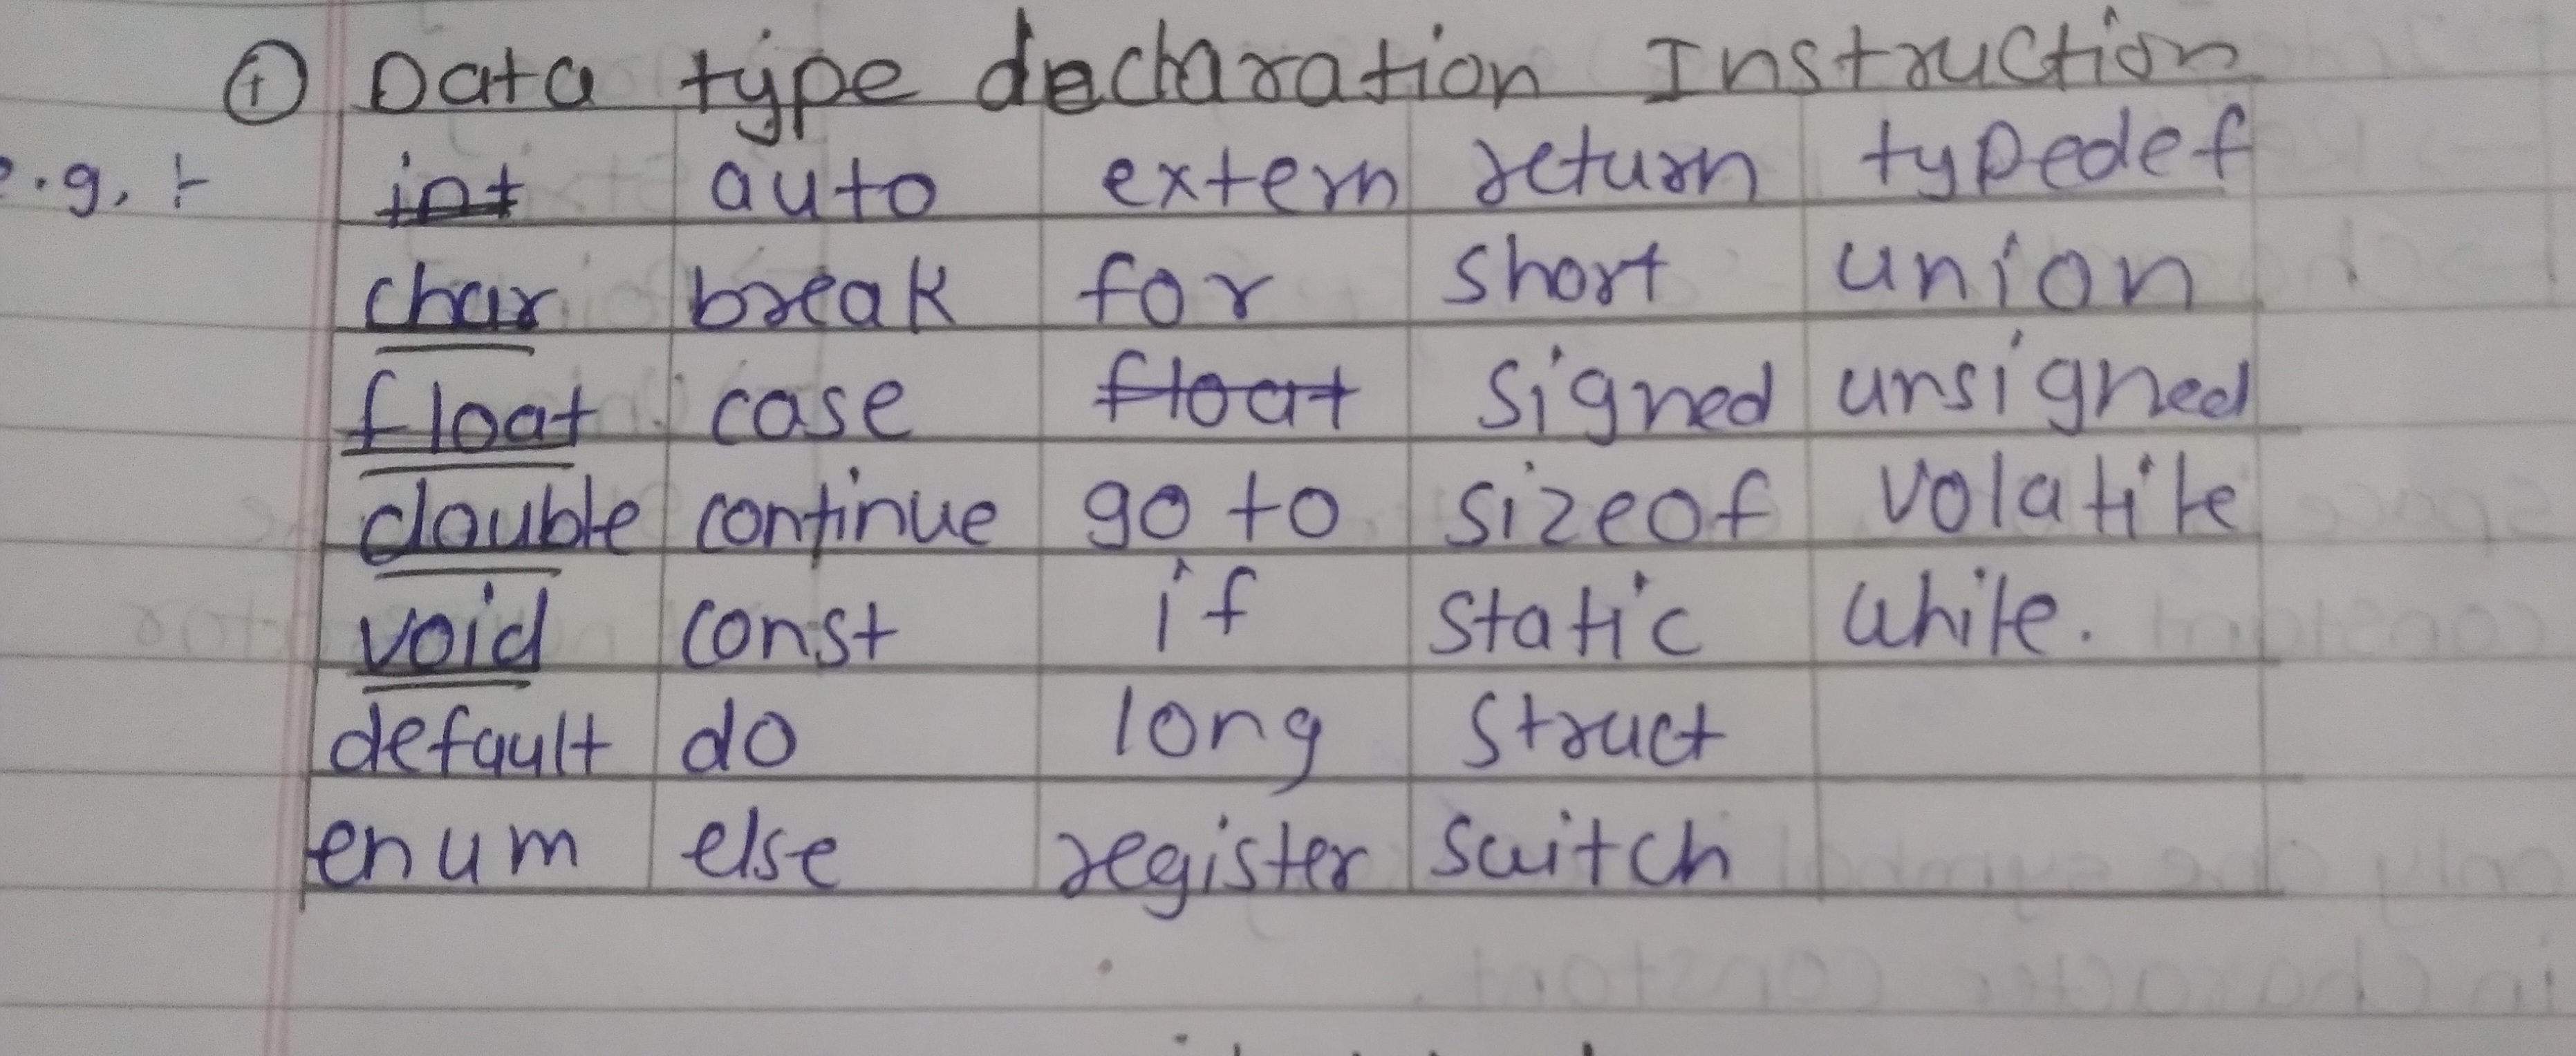 ① Data type declaration Instruction
e.g. :- int auto extern return typedef
char break for short union
float case float signed unsigned
double continue go to sizeof volatile
void const if static while.
default do long struct
enum else register switch